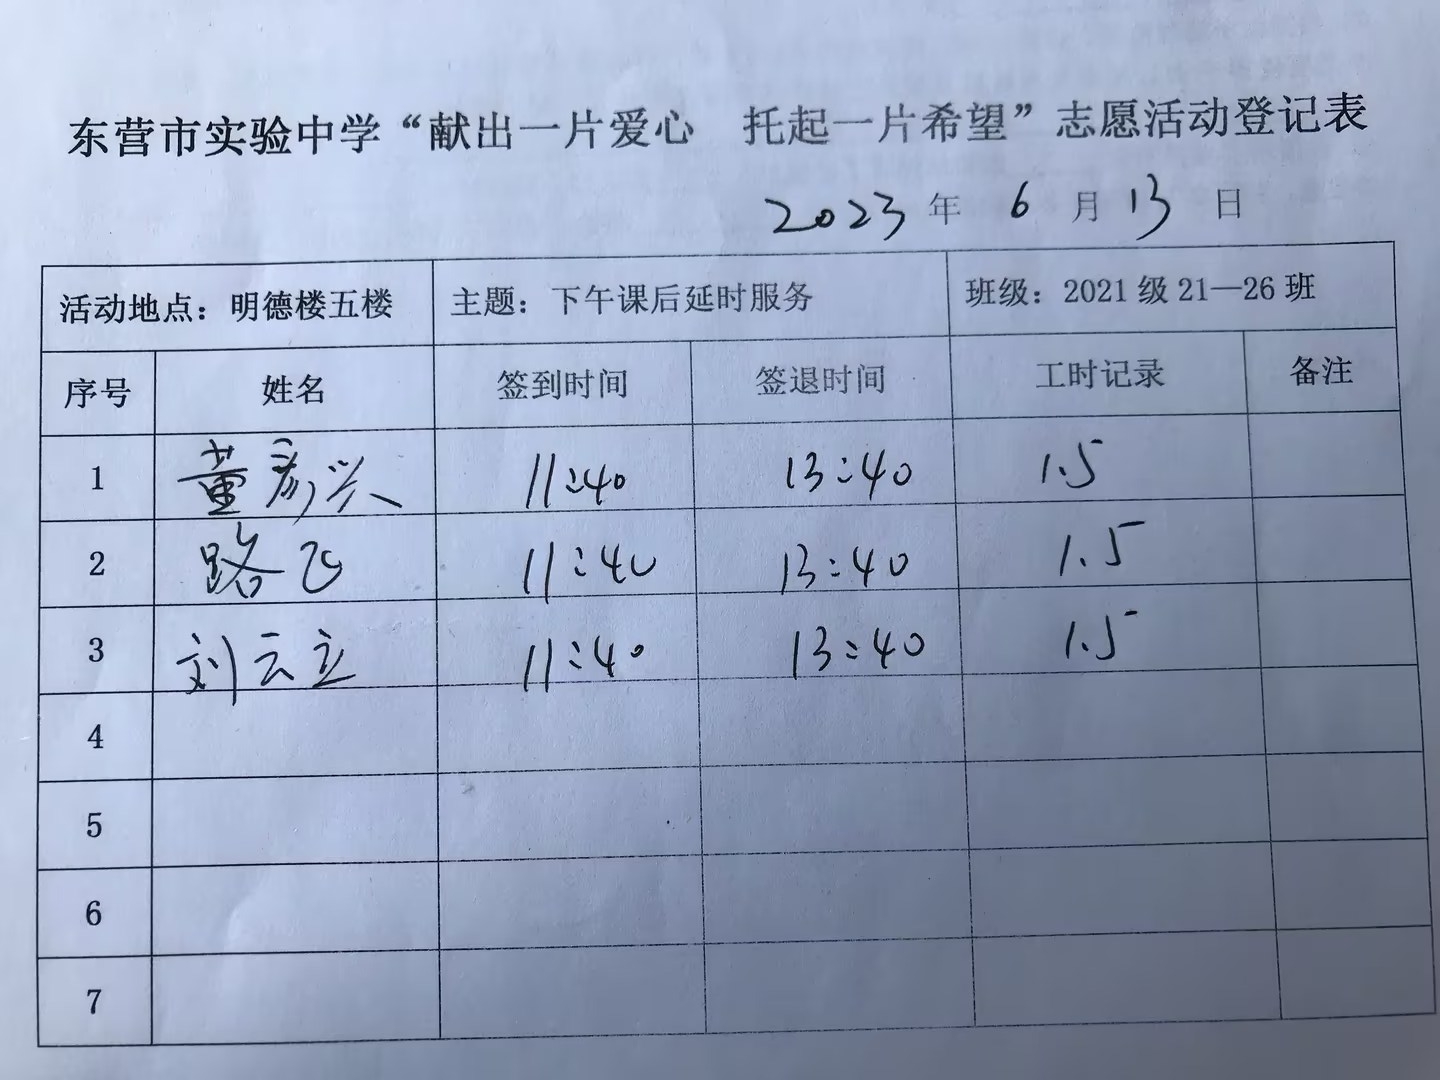 东营市实验中学“献出一片爱心 托起一片希望”志愿活动登记表
2023年 6月13日
活动地点：明德楼五楼 主题：下午课后延时服务 班级：2021级21—26班
序号 姓名 签到时间 签退时间 工时记录 备注
1 董彦兴 11:40 13:40 1.5
2 路飞 11:40 13:40 1.5
3 刘云立 11:40 13:40 1.5
4
5
6
7